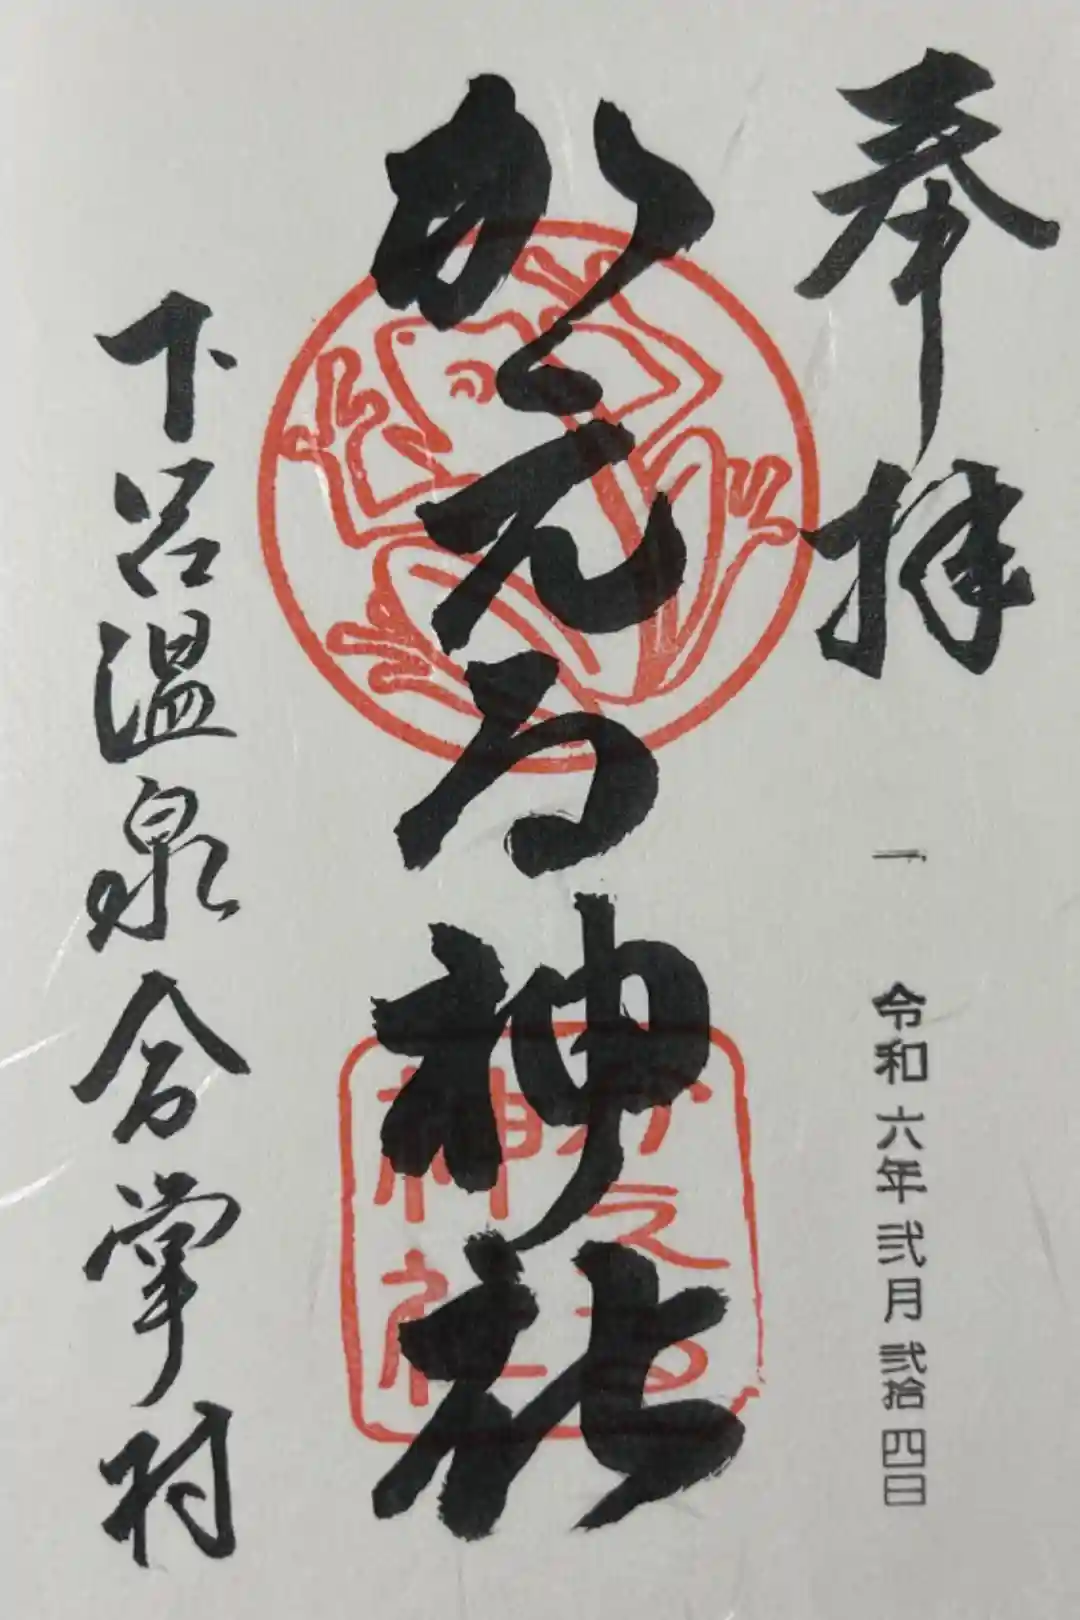 奉拝
一 令和六年弐月弐拾四日
かえる神社
かえる
神社
下呂温泉合掌村